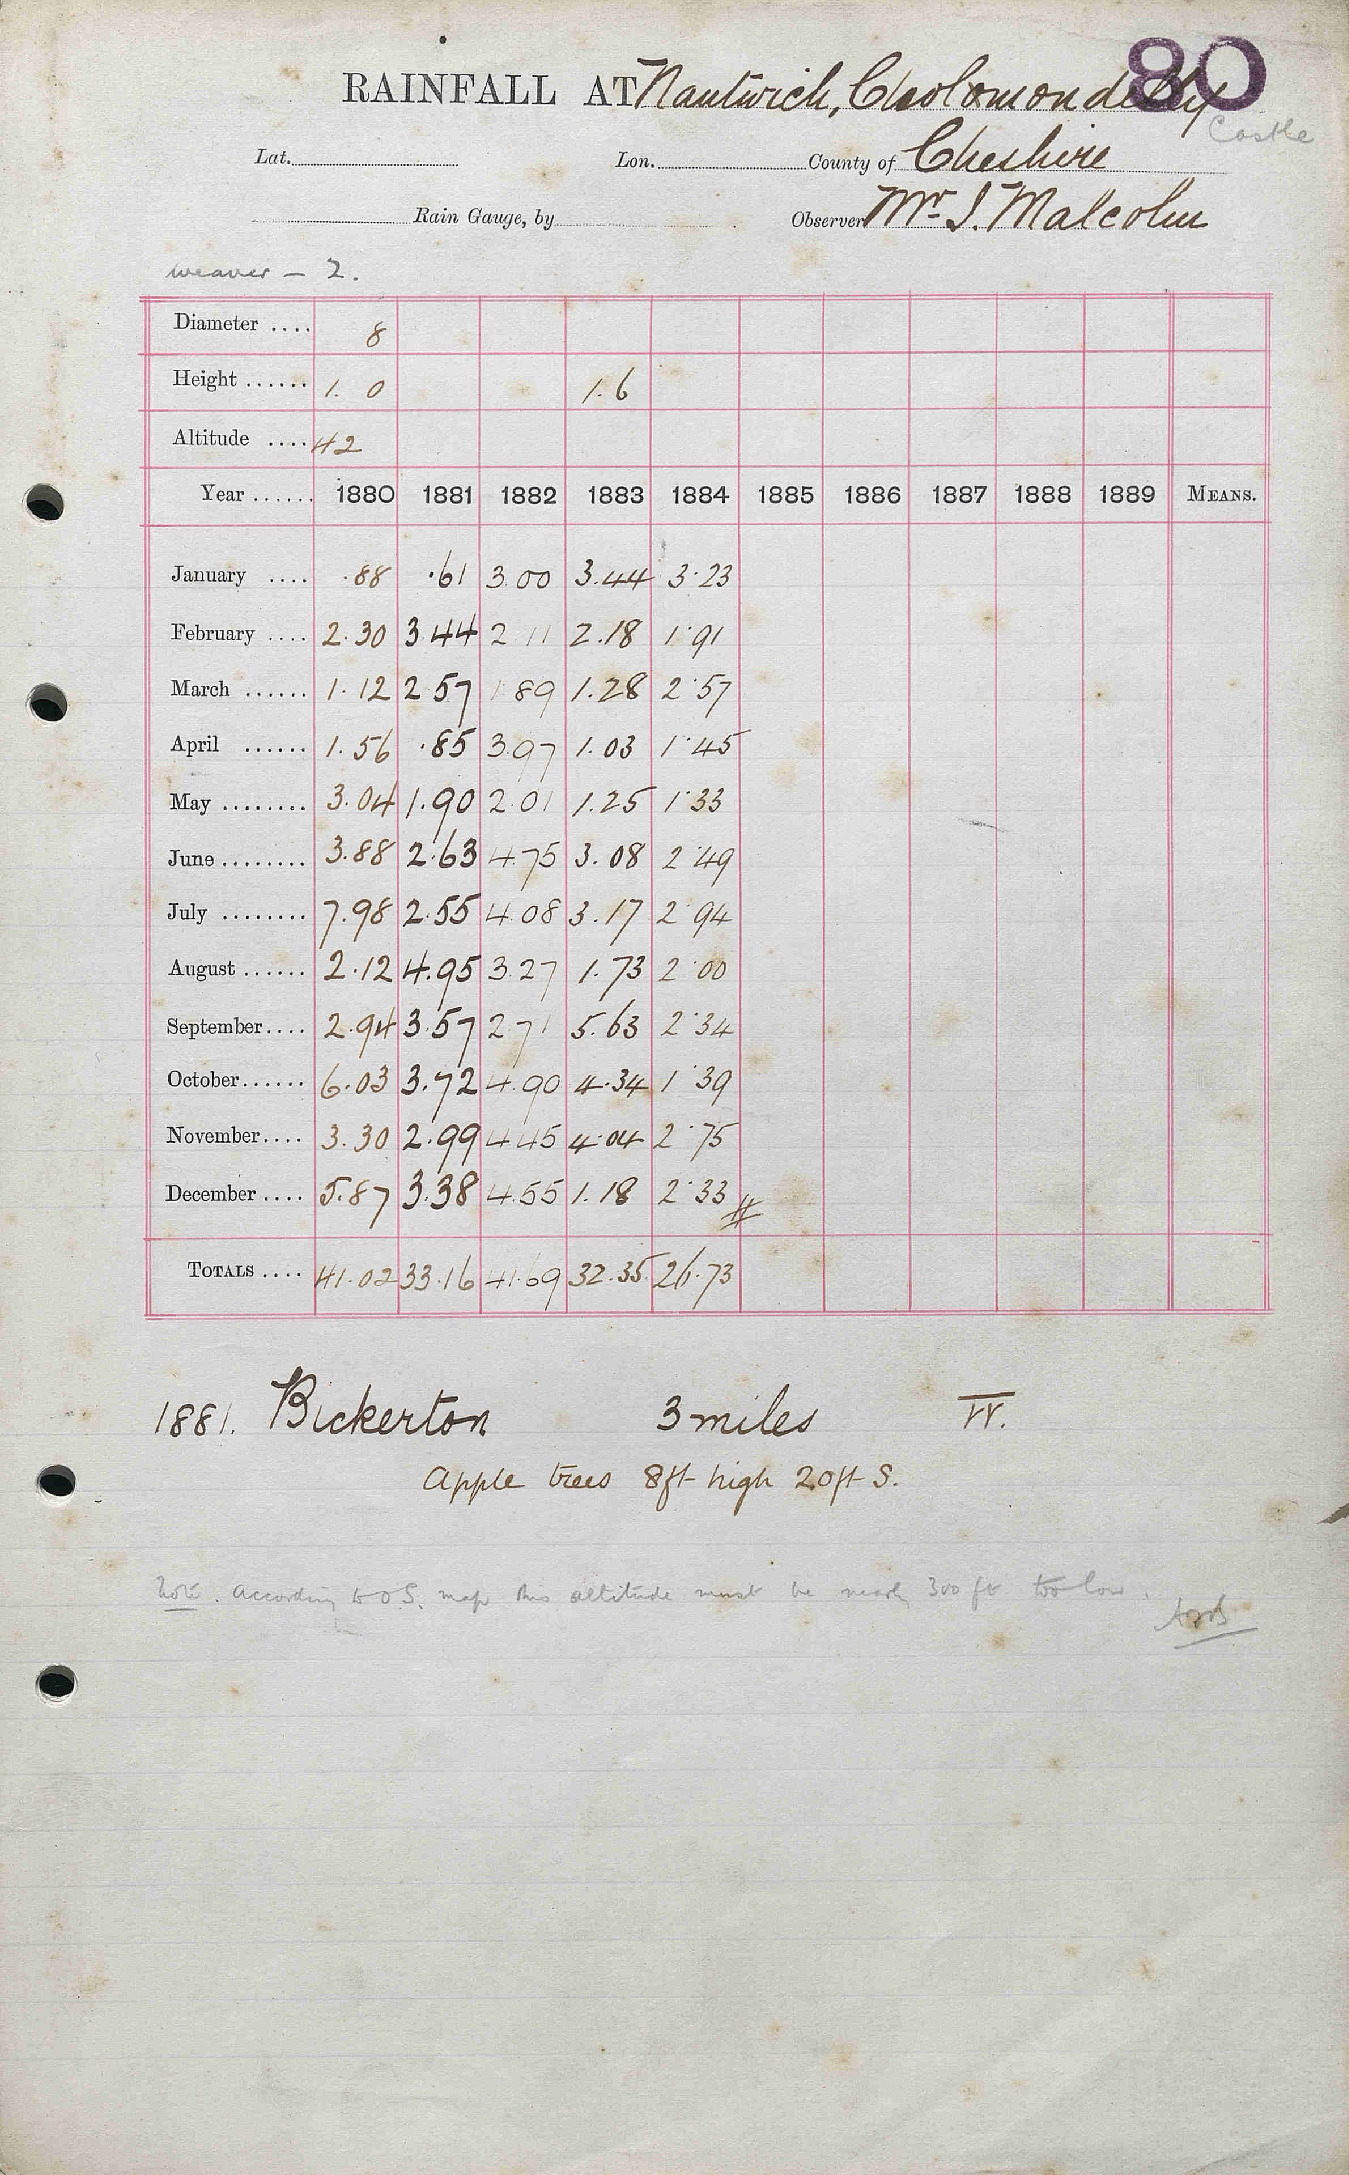 80
RAINFALL AT Nantwich, Cholomondeley
Castle
Lat. Lon. County of Cheshire
Rain Gauge, by Observer Mr. J. Malcolm
weaver - 2.
Diameter .... 8
Height ...... 1. 0 1.6
Altitude .... 42
Year ...... 1880 1881 1882 1883 1884 1885 1886 1887 1888 1889 MEANS.
January .... .88 .61 3.00 3.44 3.23
February .... 2.30 3.44 2.11 2.18 1.91
March ...... 1.12 2.57 1.89 1.28 2.57
April ...... 1.56 .85 3.97 1.03 1.45
May ........ 3.04 1.90 2.01 1.25 1.33
June ........ 3.88 2.63 4.75 3.08 2.49
July ........ 7.98 2.55 4.08 3.17 2.94
August ...... 2.12 4.95 3.27 1.73 2.00
September .... 2.94 3.57 2.71 5.63 2.34
October ...... 6.03 3.72 4.90 4.34 1.39
November .... 3.30 2.99 4.45 4.04 2.75
December .... 5.87 3.38 4.55 1.18 2.33
TOTALS .... 41.02 33.16 41.69 32.35 26.73
1881. Bickerton 3 miles
Apple trees 8ft high 20ft S.
Note. According to O.S. map this altitude must be nearly 300 ft too low.